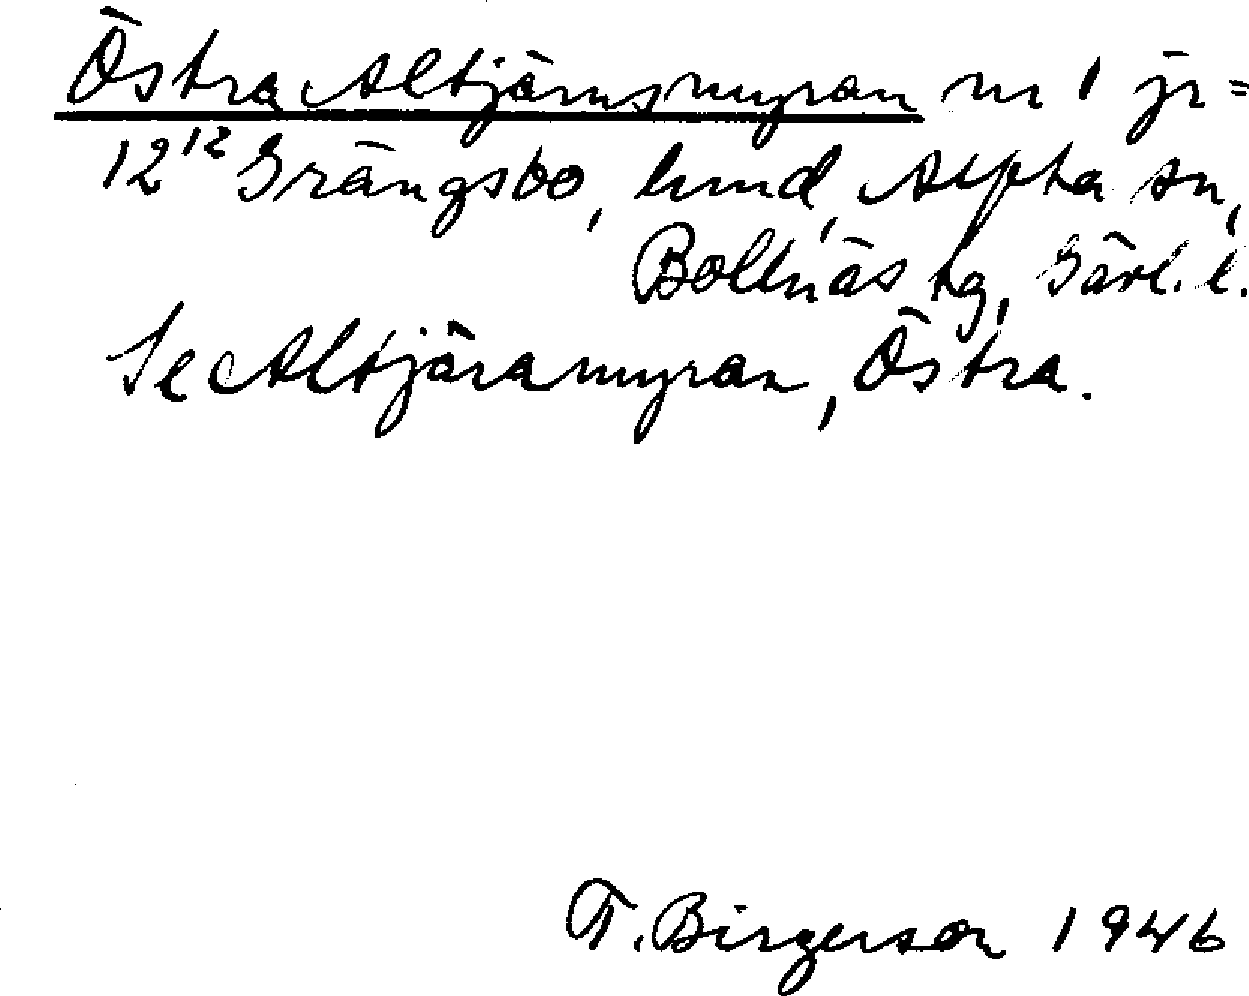 Östra Altjärnsmyran nr 1 jr =
12¹² Grängsbo, hmd, Alfta sn,
Bollnäs tg, Gävl. l.
Se Altjäramyran, Östra.
F. Birgerson 1946